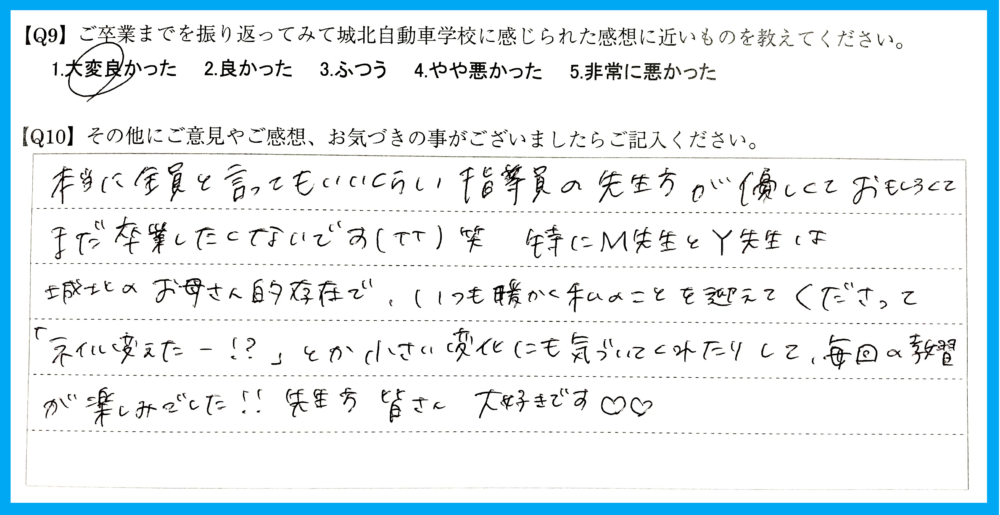 【Q9】ご卒業までを振り返ってみて城北自動車学校に感じられた感想に近いものを教えてください。
1.大変良かった 2.良かった 3.ふつう 4.やや悪かった 5.非常に悪かった
【Q10】その他にご意見やご感想、お気づきの事がございましたらご記入ください。
本当に全員と言ってもいいくらい 指導員の先生方が優しくて おもしろくて
まだ卒業したくないです(TT)笑 特にM先生とY先生は
城北のお母さん的存在で、いつも暖かく私のことを迎えてくださって
「ネイル変えたー!?」とか小さい変化にも気づいてくれたりして、毎回の教習
が楽しみでした!! 先生方 皆さん 大好きです♡♡